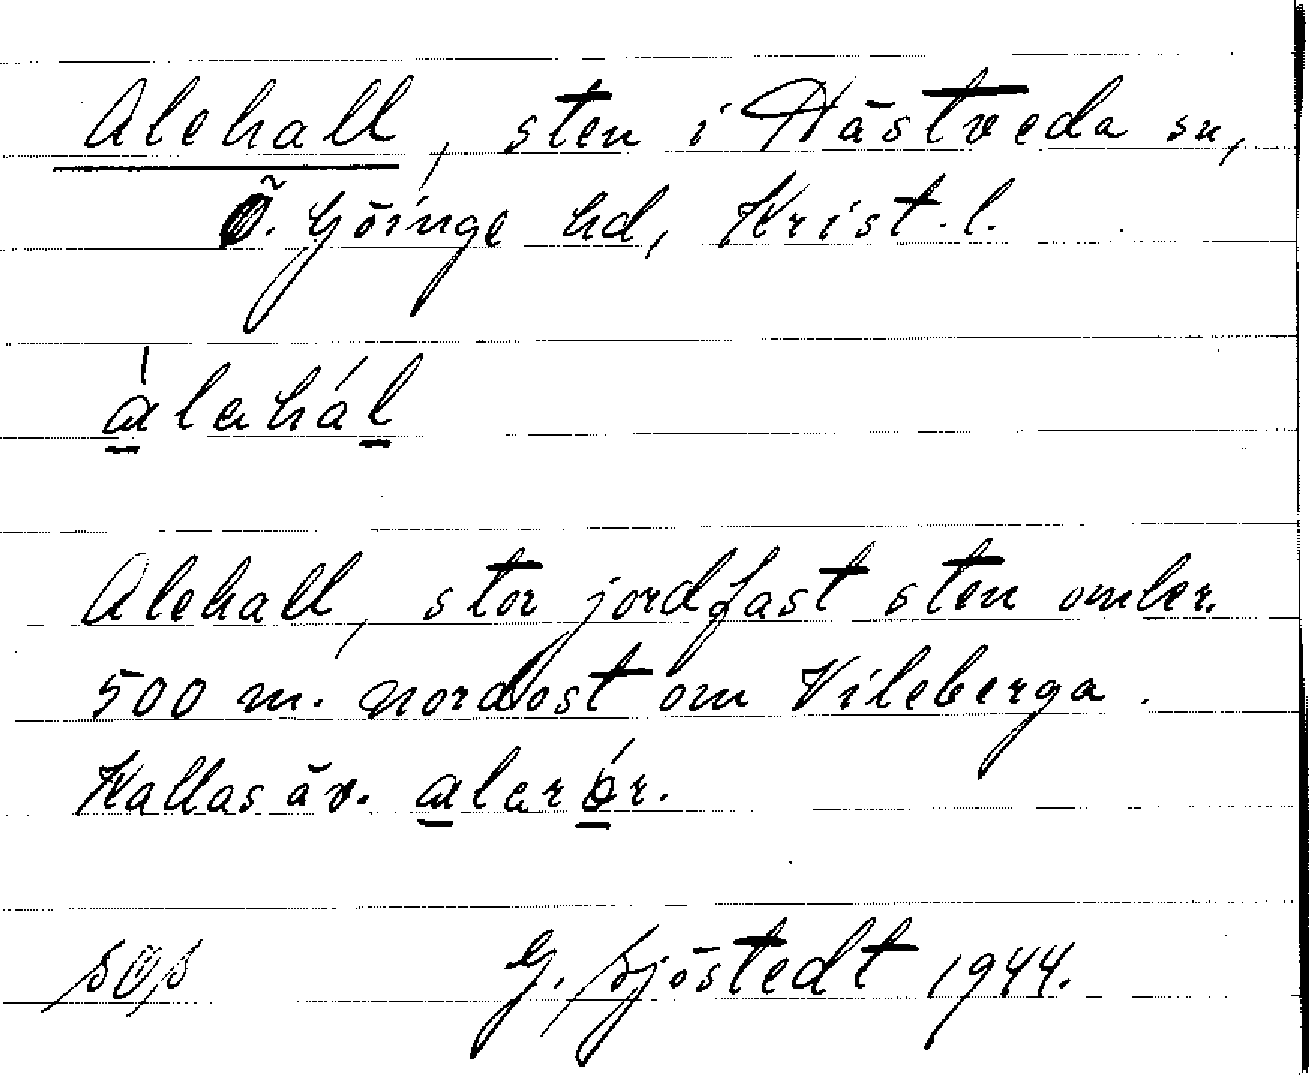 Alehall, sten i Hästveda sn,
Ö. Göinge hd, Krist. l.
a̱laháḻ
Alehall, stor jordfast sten omkr.
500 m. nordost om Vileberga.
Kallas äv.
G. Sjöstedt 1944.